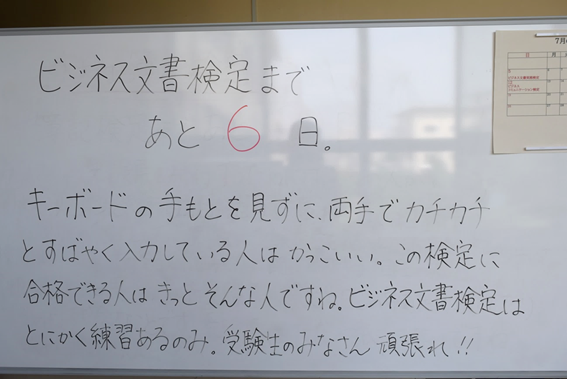 ビジネス文書検定まで
あと 6 日。
キーボードの手もとを見ずに、両手でカチカチ
とすばやく入力している人はかっこいい。この検定に
合格できる人はきっとそんな人ですね。ビジネス文書検定は
とにかく練習あるのみ。受験生のみなさん 頑張れ!!
7月